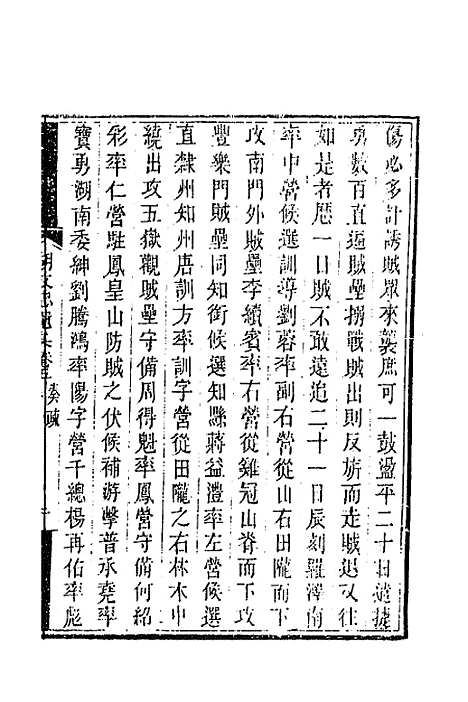 傷必多計誘賊眾來襲庶可一鼓盪平二十日遣捷
勇數百直逼賊壘搦戰賊出則反旆而走賊退又往
如是者歷一日賊不敢遠追二十一日辰刻羅澤南
率中營候選訓導劉蓉率副右營從山右田隴而下
攻南門外賊壘李續賓率右營從雞冠山脊而下攻
豐樂門賊壘同知銜候選知縣蔣益澧率左營候選
直隸州知州唐訓方率訓字營從田隴之右林木中
繞出攻五獄觀賊壘守備周得魁率鳳營守備何紹
彩率仁營駐鳳皇山防賊之伏候補游擊普承堯率
寶勇湖南委紳劉騰鴻率陽字營千總楊再佑率彪
奏疏